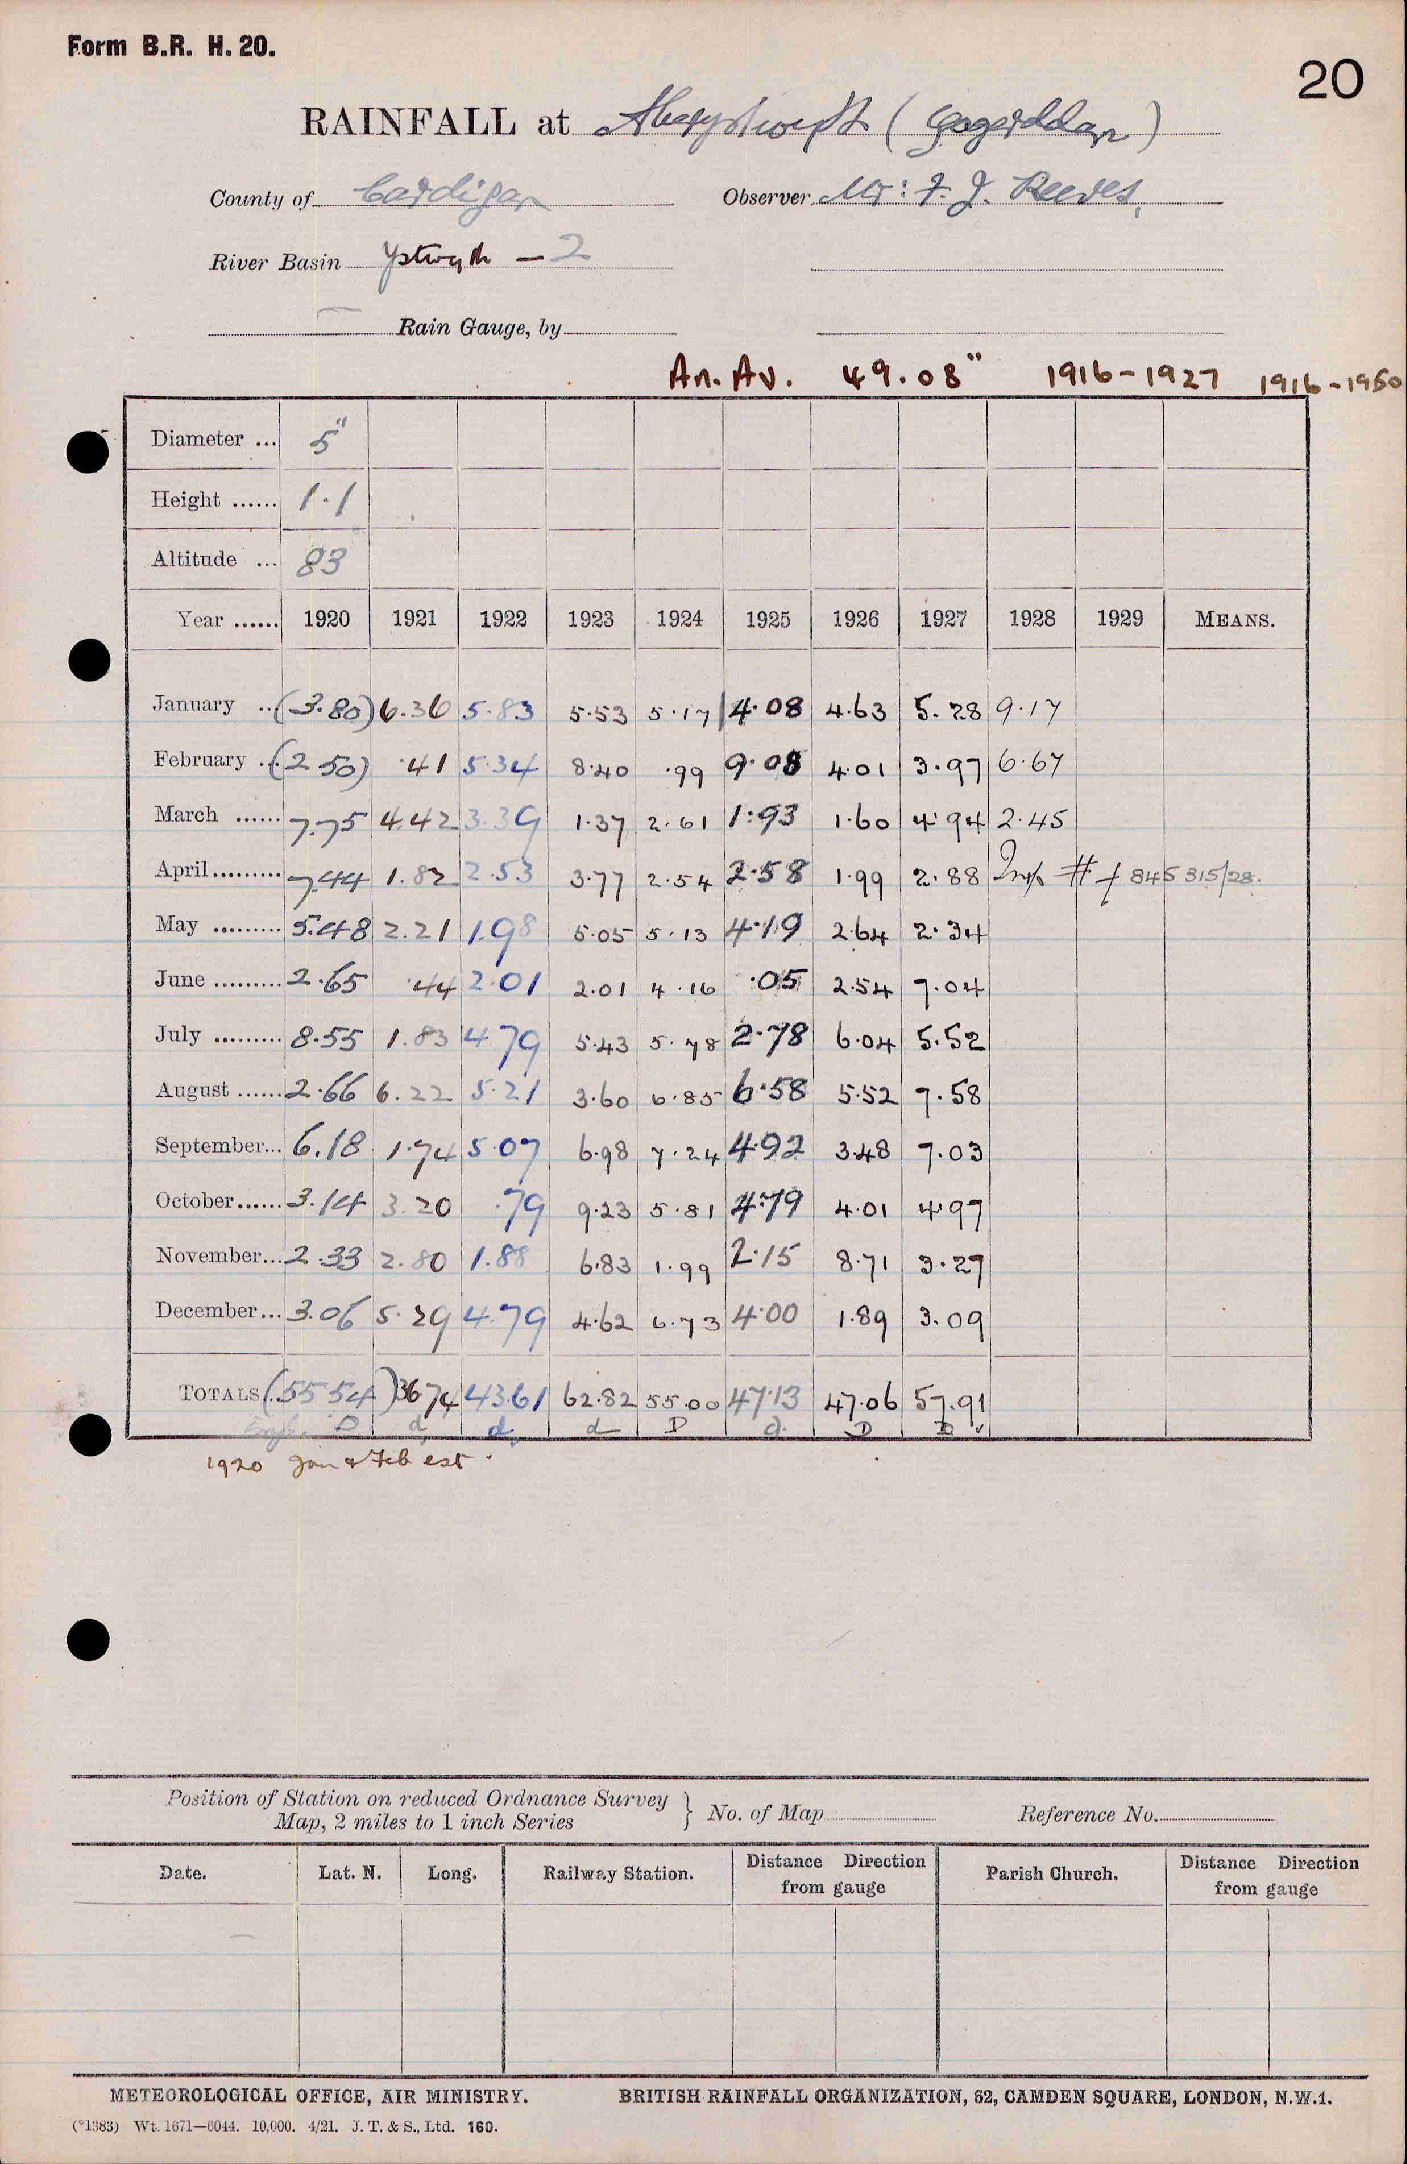 Form B.R. H. 20.
20
RAINFALL at Aberystwyth (Gogerddan)
County of Cardigan Observer Mr: F. J. Reeves.
River Basin Ystwyth — 2
Rain Gauge, by
An. Av. 49.08" 1916-1927 1916-1950
Diameter ... 5"
Height ...... 1.1
Altitude ... 83
Year ...... 1920 1921 1922 1923 1924 1925 1926 1927 1928 1929 MEANS.
January .. (3.80) 6.36 5.83 5.53 5.17 4.08 4.63 5.28 9.17
February .. (2.50) .41 5.34 8.40 .99 9.08 4.01 3.97 6.67
March ...... 7.75 4.42 3.39 1.37 2.61 1.93 1.60 4.94 2.45
April......... 7.44 1.82 2.53 3.77 2.54 2.58 1.99 2.88 845315/28.
May ......... 5.48 2.21 1.98 5.05 5.13 4.19 2.64 2.34
June ......... 2.65 .44 2.01 2.01 4.16 .05 2.54 7.04
July ......... 8.55 1.83 4.79 5.43 5.78 2.78 6.04 5.52
August ...... 2.66 6.22 5.21 3.60 6.85 6.58 5.52 7.58
September... 6.18 1.74 5.07 6.98 7.24 4.92 3.48 7.03
October...... 3.14 3.20 .79 9.23 5.81 4.79 4.01 4.97
November... 2.33 2.80 1.88 6.83 1.99 2.15 8.71 3.27
December... 3.06 5.29 4.79 4.62 6.73 4.00 1.89 3.09
TOTALS (55.54) 36.74 43.61 62.82 55.00 47.13 47.06 57.91
D d d. d D d. D D
1920 Jan & Feb est.
Position of Station on reduced Ordnance Survey
Map, 2 miles to 1 inch Series } No. of Map Reference No.
Date. Lat. N. Long. Railway Station. Distance Direction from gauge Parish Church. Distance Direction from gauge
METEOROLOGICAL OFFICE, AIR MINISTRY. BRITISH RAINFALL ORGANIZATION, 62, CAMDEN SQUARE, LONDON, N.W.1.
(*1383) Wt. 1671—6044. 10,000. 4/21. J. T. & S., Ltd. 160.